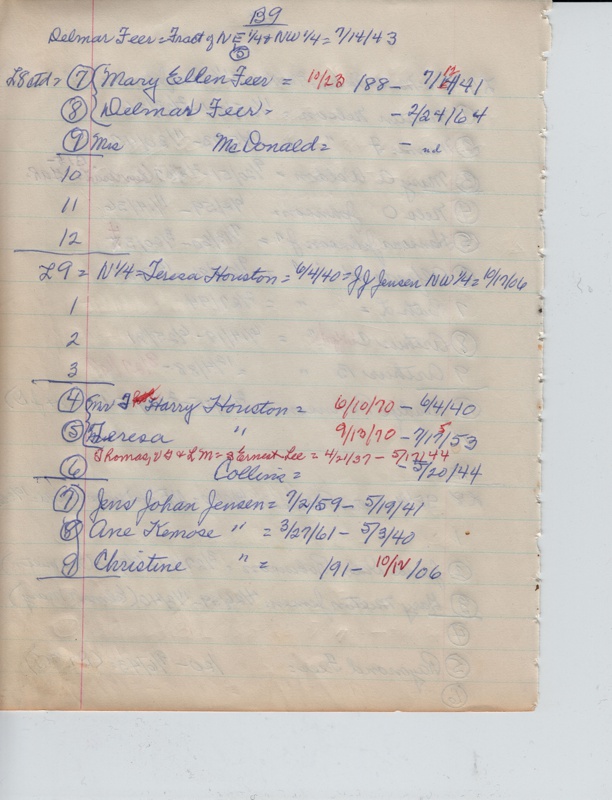 B9
Delmar Feer = Tract of NE 1/4 + NW 1/4 = 7/14/43
L8 ctd = 7 Mary Ellen Feer = 10/23 /88 - 7/12/41
8 Delmar Feer = - 2/24/64
9 Mrs McDonald = - nd
10
11
12
L9 = N 1/4 = Teresa Houston = 6/4/40 = J J Jensen NW 1/4 = 10/17/06
1
2
3
4 Mr Harry Houston = 6/10/70 - 6/4/40
5 Teresa " 9/13/70 - 7/17/53
Thomas, V G & L M = 3 Ernest Lee = 4/21/37 - 5/17/44
6 Collins = - 5/20/44
7 Jens Johan Jensen = 7/2/59 - 5/19/41
8 Ane Kemose " = 3/27/61 - 5/3/40
9 Christine " = /91 - 10/12/06